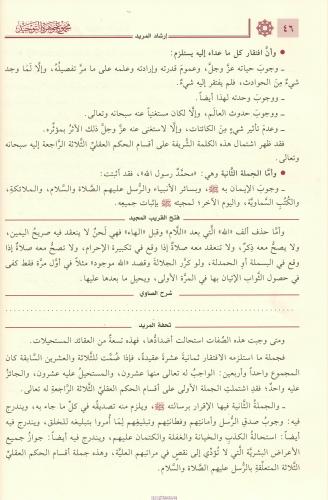 ٤٦
إرشاد المريد
مجموع جوهرة التوحيد
• وأنَّ افتقار كل ما عداه إليه يستلزم:
ـ وجوبَ حياته عزَّ وجلَّ، وعمومَ قدرته وإرادته وعلمه على ما مرَّ تفصيلُهُ، وإلَّا لمَا وجد
شيءٌ مِنَ الحوادث، فلم يفتقر إليه شيءٌ.
ـ ووجوبَ وحدته لهذا أيضاً.
ـ ووجوبَ حدوث العالَم، وإلَّا لكان مستغنياً عنه سبحانه وتعالى.
ـ وعدمَ تأثير شيءٍ مِنَ الكائنات، وإلَّا لاستغنى عنه عزَّ وجلَّ ذلك الأثرُ بمؤثِّره.
فقد ظهر اشتمال هذه الكلمة الشريفة على أقسام الحكم العقليِّ الثلاثة الرَّاجعة إليه سبحانه
وتعالى.
• وأمَّا الجملة الثَّانية وهي: «محمَّدٌ رسول الله»، فقد أثبتت:
ـ وجوبَ الإيمان به ﷺ، وبسائر الأنبياء والرُّسل عليهم الصَّلاة والسَّلام، والملائكةِ،
والكُتُبِ السَّماويَّة، واليومِ الآخر؛ لمجيئه ﷺ بإثبات جميعه.
فتح القريب المجيد
وأمَّا حذف ألف «الله» الَّتي بعد «اللَّام» وقبل «الهاء» فهي لَحنٌ لا ينعقد فيه صريحُ اليمين،
ولا يصحُّ معه ذِكرٌ، ولا تنعقد معه صلاةٌ إذا وقع في تكبيرة الإحرام، ولا تصحُّ معه صلاةٌ إذا
وقع في البسملة أو الحمدلة، ولو كرَّر الجلالةَ وقصد «الله موجود» مثلاً في أوَّل مرَّة فقط كفى
في حصول الثَّواب الإتيان بها في المرَّة الأولى، ويحيل ما بعدها عليها.
شرح الصاوي
تحفة المريد
ومتى وجبت هذه الصِّفات استحالت أضدادُها، فهذه تسعةٌ من العقائد المستحيلات.
فجملة ما استلزمه الافتقار ثمانيةَ عشرةَ عقيدةً، فإذا ضُمَّت للثَّلاثة والعشرين السابقة كان
المجموع واحداً وأربعين: الواجبُ له تعالى منها عشرون، والمستحيلُ عليه عشرون، والجائزُ
عليه واحدٌ؛ فقد اشتملتِ الجملة الأولى على أقسام الحكم العقليِّ الثَّلاثة الرَّاجعة له تعالى.
ـ والجملةُ الثَّانية فيها الإقرار برسالته ﷺ، ويلزم منه تصديقُه في كلِّ ما جاء به، ويندرج
فيه: وجوبُ صدقِ الرُّسل وأمانتِهم وفطانتِهم وتبليغِهم لِمَا أُمروا بتبليغه للخلق، ويندرج فيه
أيضاً: استحالةُ الكذبِ والخيانةِ والغفلةِ والكتمانِ عليهم، ويندرج فيه أيضاً: جوازُ جميعِ
الأعراض البشريَّة الَّتي لا تُؤدِّي إلى نقص في مراتبهم العليَّة، وهذه جملة أقسام الحكم العقليِّ
الثَّلاثة المتعلِّقة بالرُّسل عليهم الصَّلاة والسَّلام.